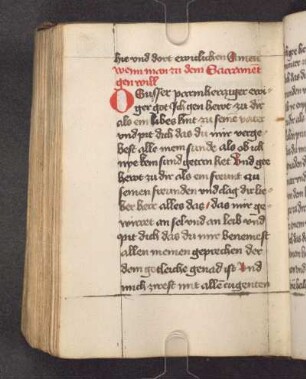 hie und dort ewiclichen Amen
wenn man zu dem Sacramet
gen will
O Susser parmherziger ewi
ger got Ich gen hewt zu dir
als ein libes kint zu seine vater
und pit dich das du mir verge
best alle mein sunde als ob ich
nye kein sund getan het Und gee
hewt zu dir als ein freunt zu
seinem freunden und clag dir lie
ber herr alles das das mir ge
wirret an sel und an leib Und
pit dich das du mir benemest
allen meinen geprechen der
dem gotleiche genad ist Und
mich zirest mit allen tugenten